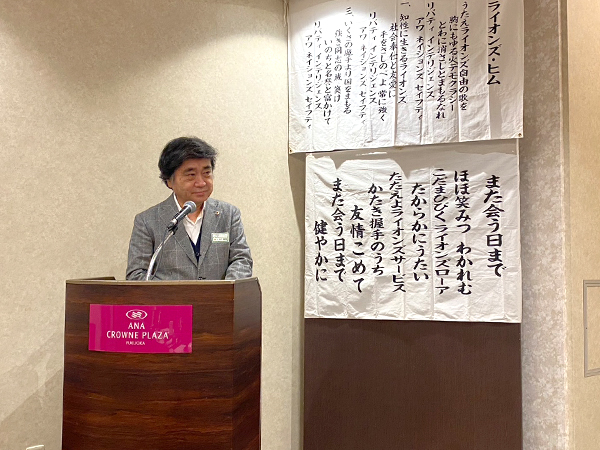 ライオンズ・ヒム
うたえライオンズ自由の歌を
胸にもゆる火デモクラシー
とわに消さじとまもるなれ
リバティ インテリジェンス
アワ ネイションズ セイフティ
一、知性に生きるライオンズ
社会奉仕と友愛に
手をさしのべよ 常に強く
リバティ インテリジェンス
アワ ネイションズ セイフティ
リバティ インテリジェンス
アワ ネイションズ セイフティ
また会う日まで
ほほ笑みつ わかれむ
こだまひびくライオンズローア
たからかにうたい
たたえよライオンズサービス
かたき握手のうち
友情こめて
また会う日まで
健やかに
ANA
CROWNE PLAZA
FUKUOKA